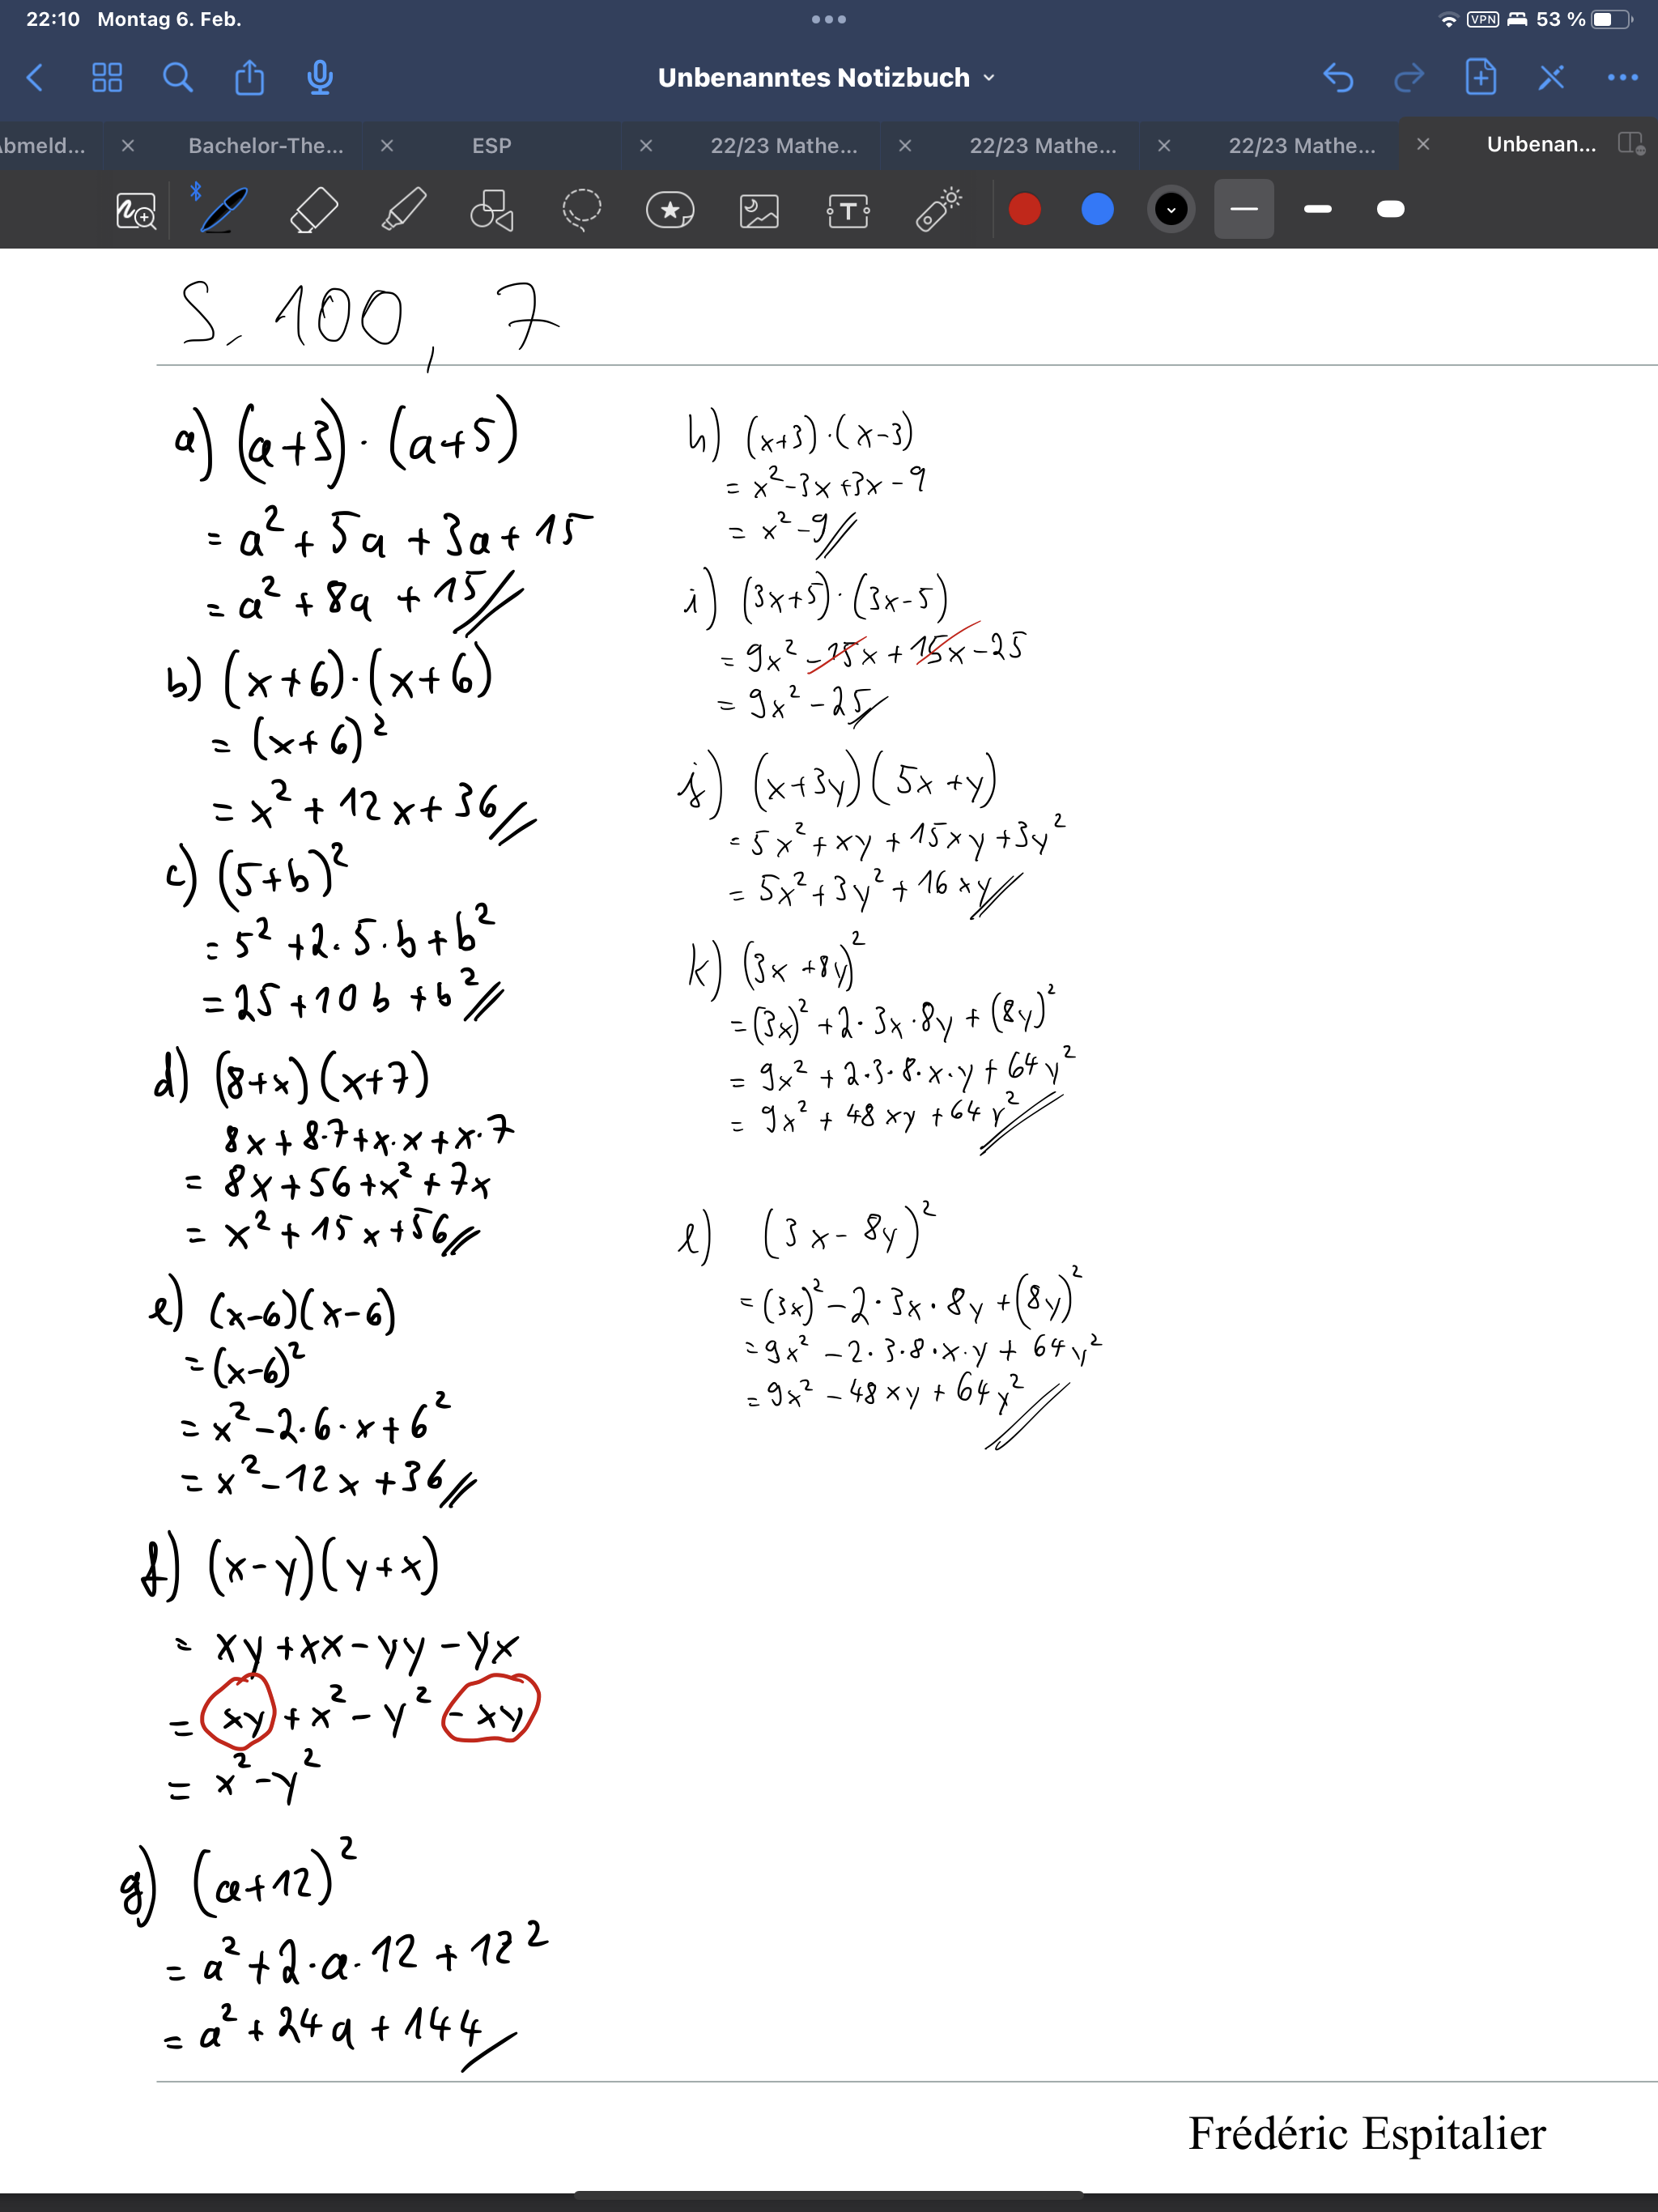 22:10 Montag 6. Feb.
VPN 53 %
Unbenanntes Notizbuch
Abmeld... Bachelor-The... ESP 22/23 Mathe... 22/23 Mathe... 22/23 Mathe... Unbenan...
T
S. 100, 7
a) (a+3)·(a+5)
= a² + 5a + 3a + 15
= a² + 8a + 15
b) (x+6)·(x+6)
= (x+6)²
= x² + 12x + 36
c) (5+b)²
= 5² + 2·5·b + b²
= 25 + 10b + b²
d) (8+x)(x+7)
8x + 8·7 + x·x + x·7
= 8x + 56 + x² + 7x
= x² + 15x + 56
e) (x-6)(x-6)
= (x-6)²
= x² - 2·6·x + 6²
= x² - 12x + 36
f) (x-y)(y+x)
= xy + xx - yy - yx
= xy + x² - y² - xy
= x² - y²
g) (a+12)²
= a² + 2·a·12 + 12²
= a² + 24a + 144
h) (x+3)·(x-3)
= x² - 3x + 3x - 9
= x² - 9
i) (3x+5)·(3x-5)
= 9x² - 15x + 15x - 25
= 9x² - 25
j) (x+3y)(5x+y)
= 5x² + xy + 15xy + 3y²
= 5x² + 3y² + 16xy
k) (3x+8y)²
= (3x)² + 2·3x·8y + (8y)²
= 9x² + 2·3·8·x·y + 64y²
= 9x² + 48xy + 64y²
l) (3x-8y)²
= (3x)² - 2·3x·8y + (8y)²
= 9x² - 2·3·8·x·y + 64y²
= 9x² - 48xy + 64y²
Frédéric Espitalier